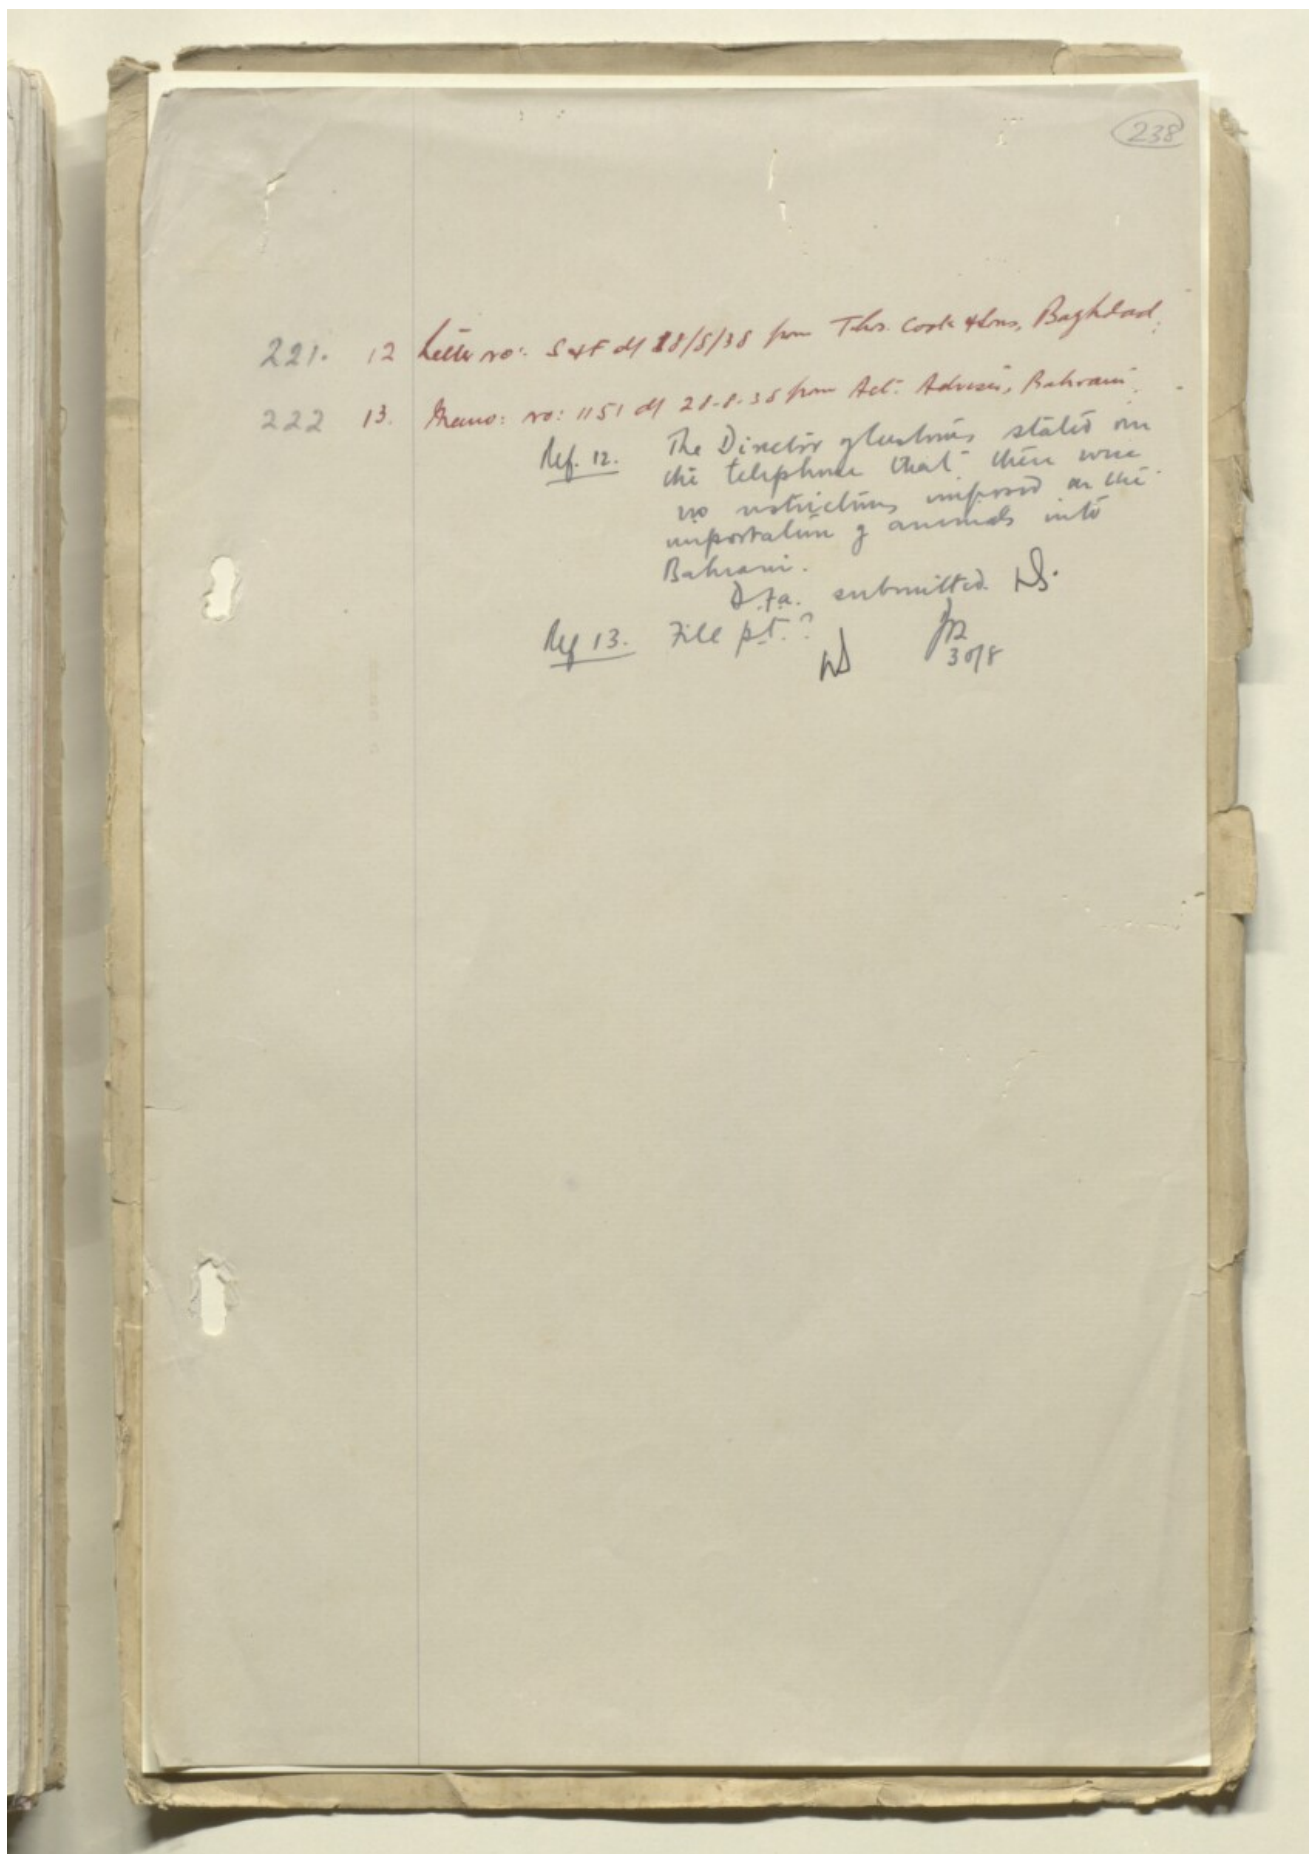 238
221. 12 Letter no: S & F d/ 18/8/38 from Thos. Cook & Sons, Baghdad.
222 13. Memo: no: 1151 d/ 28-8-38 from Act: Adviser, Bahrain.
Ref. 12. The Director of Customs stated on
the telephone that there were
no restrictions imposed on the
importation of animals into
Bahrain.
D.F.a. submitted.
Ref 13. File pt.?
30/8